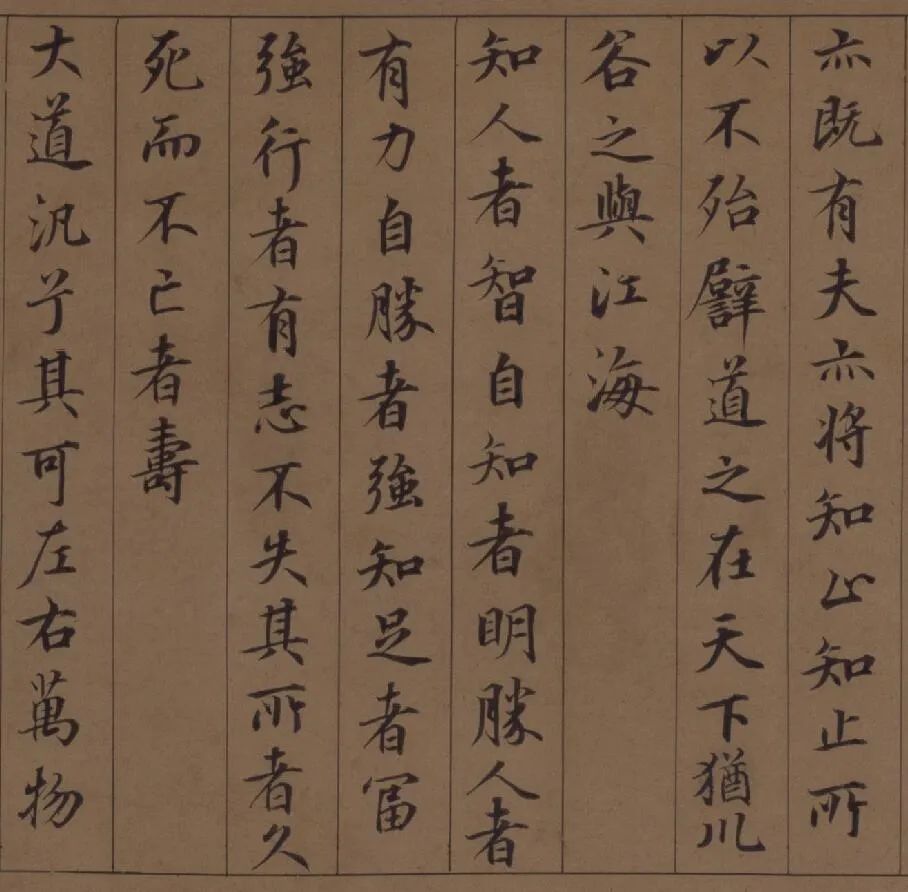 亦既有夫亦将知止知止所
以不殆譬道之在天下猶川
谷之與江海
知人者智自知者明勝人者
有力自勝者強知足者富
強行者有志不失其所者久
死而不亡者壽
大道汎兮其可左右萬物